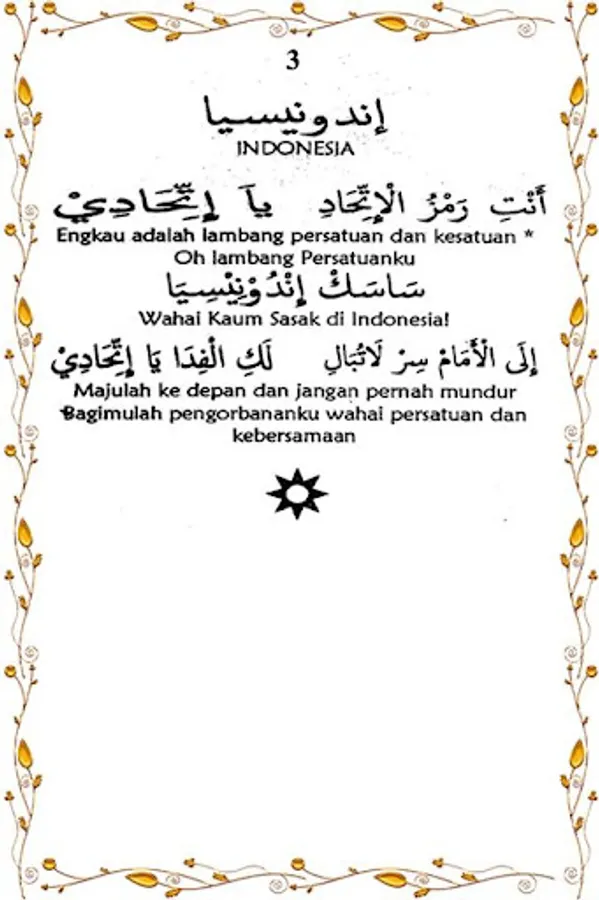 3
إندونيسيا
INDONESIA
أَنْتِ رَمْزُ الْإِتِّحَادِ يآ إِتِّحَادِيْ
Engkau adalah lambang persatuan dan kesatuan *
Oh lambang Persatuanku
سَاسَكْ إِنْدُوْنِيْسِيَا
Wahai Kaum Sasak di Indonesia!
إِلَى الْأَمَامْ سِرْ لَاتُبَالِ لَكِ الْفِدَا يَا إِتِّحَادِيْ
Majulah ke depan dan jangan pernah mundur
Bagimulah pengorbananku wahai persatuan dan
kebersamaan